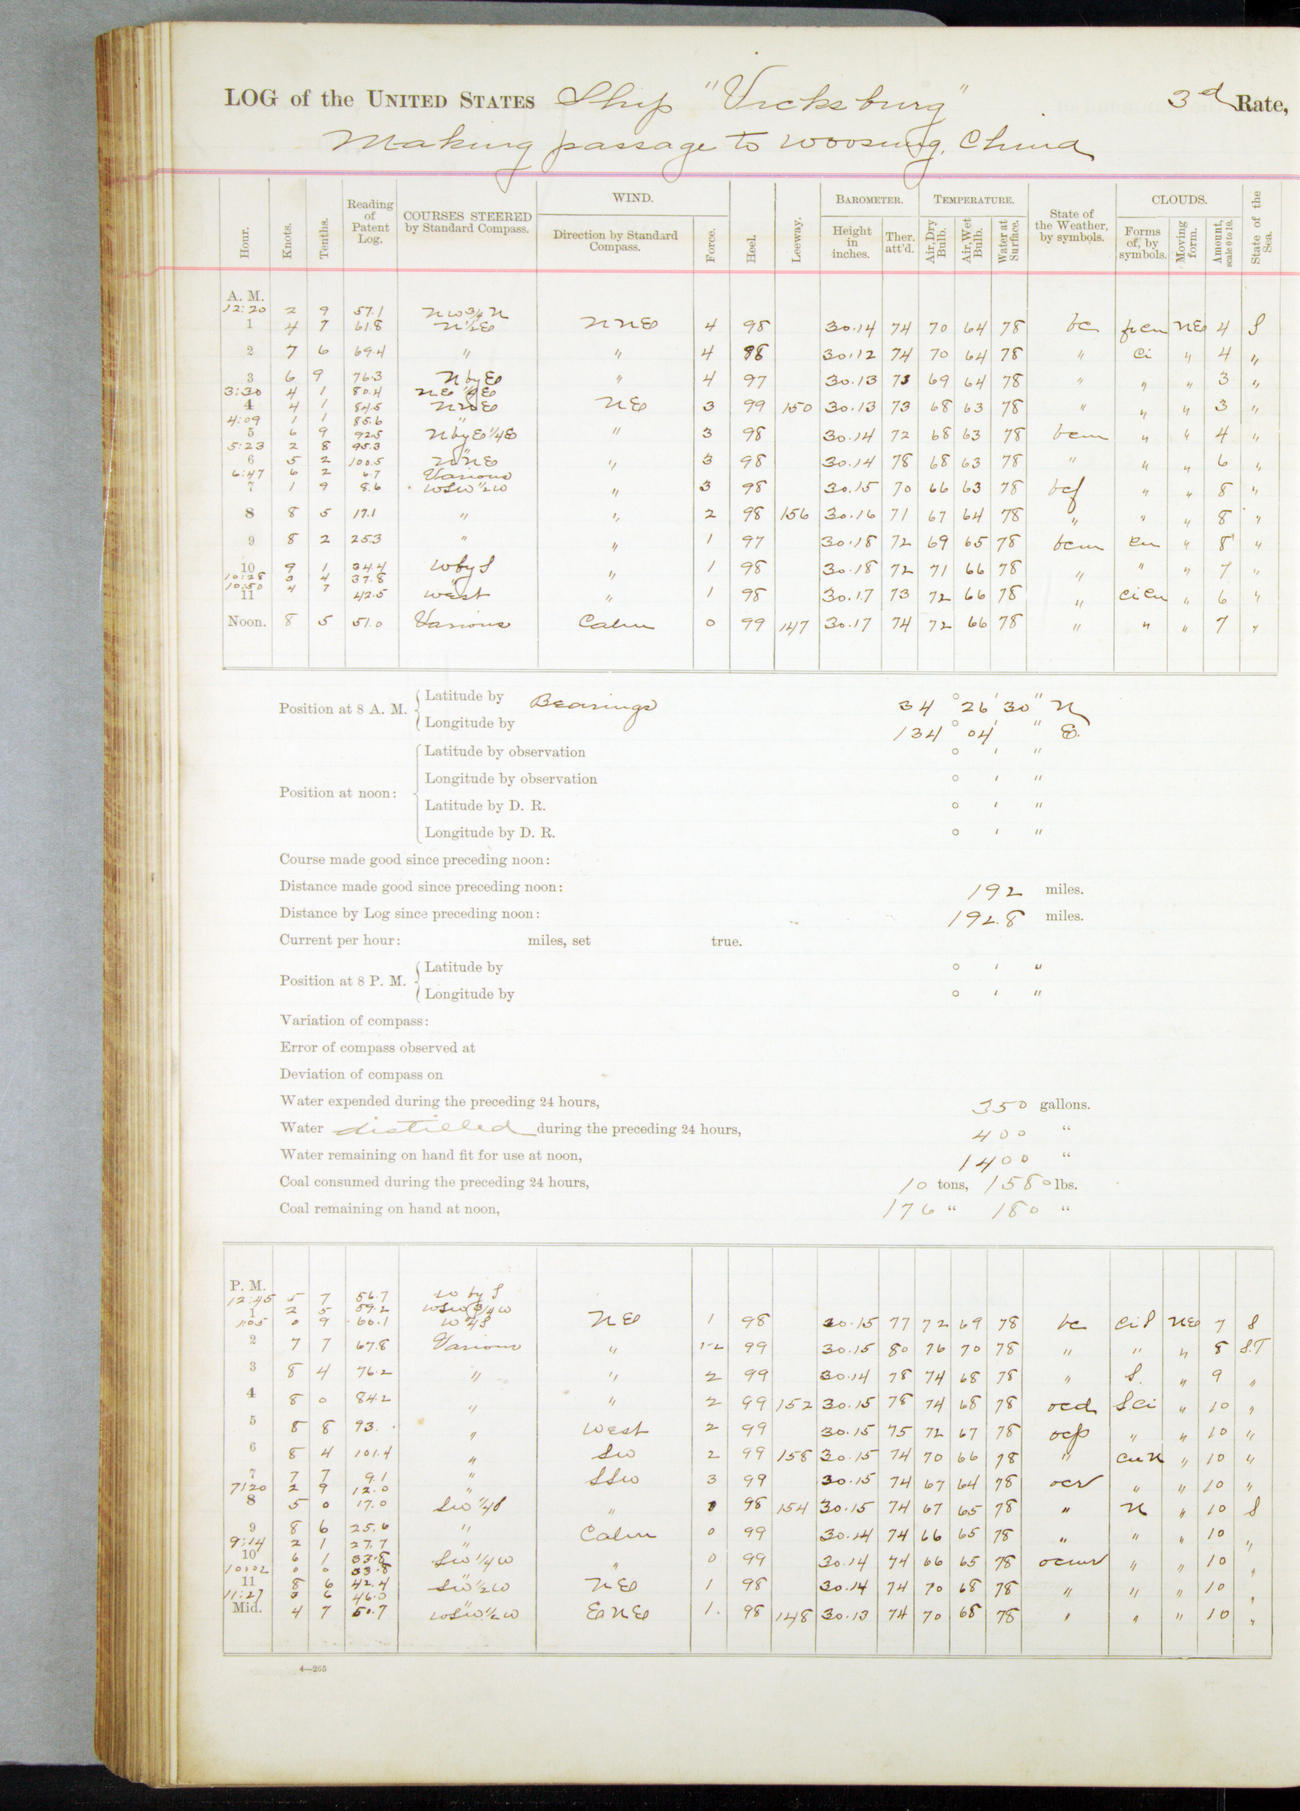 LOG of the UNITED STATES Ship "Vicksburg" 3d Rate,
Making passage to Woosung, China
Hour. Knots. Tenths. Reading of Patent Log. COURSES STEERED by Standard Compass. WIND. Direction by Standard Compass. Force. Heel. Leeway. BAROMETER. Height in inches. Ther. att'd. TEMPERATURE. Air, Dry Bulb. Air, Wet Bulb. Water at Surface. State of the Weather, by symbols. CLOUDS. Forms of, by symbols. Moving form. Amount, scale 0 to 10. State of the Sea.
A. M.
12:20 2 9 57.1 NW 3/4 N
1 4 7 61.8 N 1/2 E NNE 4 98 30.14 74 70 64 78 bc NE 4 S
2 7 6 69.4 " " 4 98 30.12 74 70 64 78 " Ci " 4 "
3 6 9 76.3 N by E " 4 97 30.13 73 69 64 78 " " " 3 "
3:30 4 1 80.4
4 4 1 84.5 NNE NE 3 99 150 30.13 73 68 63 78 " " " 3 "
4:09 1 1 85.6 "
5 6 9 92.5 N by E 1/4 E " 3 98 30.14 72 68 63 78 bcm " " 4 "
5:23 2 8 95.3
6 5 2 100.5 NNE " 3 98 30.14 78 68 63 78 " " " 6 "
6:47 6 2 6.7 Various
7 1 9 8.6 WSW 1/2 W " 3 98 30.15 70 66 63 78 bcf " " 8 "
8 8 5 17.1 " " 2 98 156 30.16 71 67 64 78 " " " 8 "
9 8 2 25.3 " " 1 97 30.18 72 69 65 78 bcm Cu " 8 "
10 9 1 34.4 W by S " 1 98 30.18 72 71 66 78 " " " 7 "
10:28 3 4 37.8
10:50 4 7 42.5 West
11 " 1 98 30.17 73 72 66 78 " Ci Cu " 6 "
Noon. 8 5 51.0 Various Calm 0 99 147 30.17 74 72 66 78 " " " 7 "
Position at 8 A. M. Latitude by Bearings 34 ° 26 ' 30 " N
Longitude by 134 ° 04 ' " E.
Position at noon: Latitude by observation ° ' "
Longitude by observation ° ' "
Latitude by D. R. ° ' "
Longitude by D. R. ° ' "
Course made good since preceding noon:
Distance made good since preceding noon: 192 miles.
Distance by Log since preceding noon: 192.8 miles.
Current per hour: miles, set true.
Position at 8 P. M. Latitude by ° ' "
Longitude by ° ' "
Variation of compass:
Error of compass observed at
Deviation of compass on
Water expended during the preceding 24 hours, 350 gallons.
Water distilled during the preceding 24 hours, 400 "
Water remaining on hand fit for use at noon, 1400 "
Coal consumed during the preceding 24 hours, 10 tons, 1580 lbs.
Coal remaining on hand at noon, 176 " 180 "
P. M.
12:45 5 7 56.7 W by S
1 2 5 59.2 WSW 3/4 W NE 1 98 30.15 77 72 69 78 bc Ci S NE 7 S
1:05 0 9 60.1
2 7 7 67.8 Various " 1-2 99 30.15 80 76 70 78 " " " 8 S.T
3 8 4 76.2 " " 2 99 30.14 78 74 68 78 " S. " 9 "
4 8 0 84.2 " " 2 99 152 30.15 78 74 68 78 ocd S Ci " 10 "
5 8 8 93. " West 2 99 30.15 75 72 67 78 ocp " " 10 "
6 8 4 101.4 " SW 2 99 158 30.15 74 70 66 78 " Cu N " 10 "
7 7 7 9.1 " SSW 3 99 30.15 74 67 64 78 ocr " " 10 "
7:20 2 9 12.0
8 5 0 17.0 SW 1/4 S " 98 154 30.15 74 67 65 78 " N " 10 S
9 8 6 25.6 " Calm 0 99 30.14 74 66 65 78 " " " 10 "
9:14 2 1 27.7 "
10 6 1 33.8 SW 1/4 W " 0 99 30.14 74 66 65 78 ocmr " " 10 "
10:02 0 0 33.8 "
11 8 6 42.4 SW 1/2 W NE 1 98 30.14 74 70 68 78 " " " 10 "
11:27 3 6 46.0
Mid. 4 7 50.7 WSW 1/2 W ENE 1. 98 148 30.13 74 70 68 78 " " " 10 "
4—265